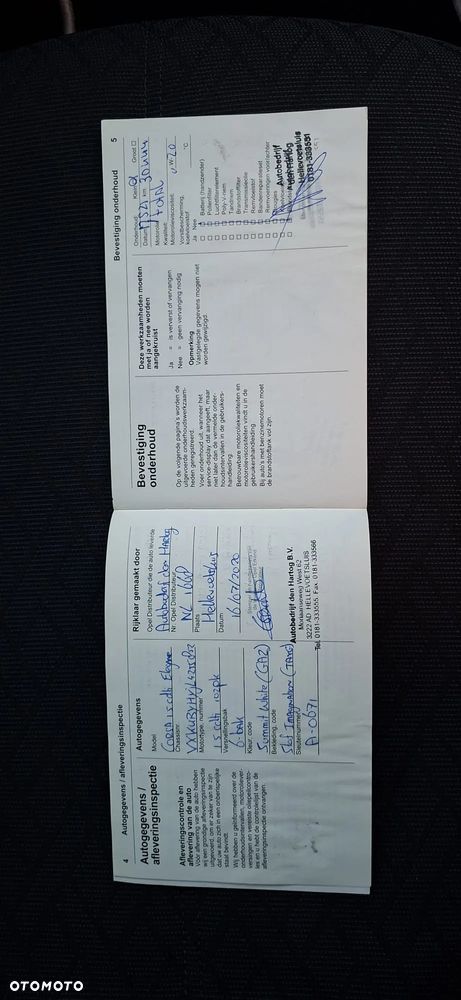 4 Autogegevens / afleveringsinspectie
Autogegevens /
afleveringsinspectie
Afleveringscontrole en
aflevering van de auto
Vóór aflevering van de auto hebben
wij een grondige afleveringsinspectie
uitgevoerd om er zeker van te zijn
dat uw auto zich in een onberispelijke
staat bevindt.
Wij hebben u geïnformeerd over de
onderhoudsintervallen, motoroliever-
versingen en vereiste oliepeilcontro-
les en u hebt de controlelijst van de
afleveringsinspectie ontvangen.
Autogegevens
Model
Chassisnr.
Motortype, nummer
Versnellingsbak
Kleur, code
Summit White (GAZ)
Bekleding, code
Sleutelnummer
Rijklaar gemaakt door
Opel Distributeur die de auto leverde
Autobedrijf den Hartog
Nr. Opel Distributeur
NL
Plaats
Hellevoetsluis
Datum
16/07/2020
Autobedrijf den Hartog B.V.
Moriaanseweg West 62
3222 AD HELLEVOETSLUIS
Tel. 0181-333555 Fax. 0181-333566
Bevestiging onderhoud 5
Bevestiging
onderhoud
Op de volgende pagina's worden de
uitgevoerde onderhoudswerkzaam-
heden geregistreerd.
Voer onderhoud uit, wanneer het
service-display dat aangeeft, maar
niet later dan de vermelde onder-
houdsintervallen in de gebruikers-
handleiding.
Betrouwbare motoroliekwaliteiten en
motorolieviscositeiten vindt u in de
gebruikershandleiding.
Bij auto's met benzinemotoren moet
de brandstoftank vol zijn.
Deze werkzaamheden moeten
met ja of nee worden
aangekruist
Ja = is ververst of vervangen
Nee = geen vervanging nodig
Opmerking
Vastgelegde gegevens mogen niet
worden gewijzigd.
Onderhoud: Klein Groot
Datum km
Motorolie
Total
Kwaliteit:
Motorolieviscositeit: W-20
Vorstbescherming,
koelvloeistof °C
Ja Nee
Batterij (handzender)
Pollenfilter
Luchtfilterelement
Poly-V-riem
Tandriem
Brandstoffilter
Transmissieolie
Remvloeistof
Bandenreparatieset
Remvoeringen voor/achter
Autobedrijf
den Hartog
Hellevoetsluis
0181-333551
OTOMOTO